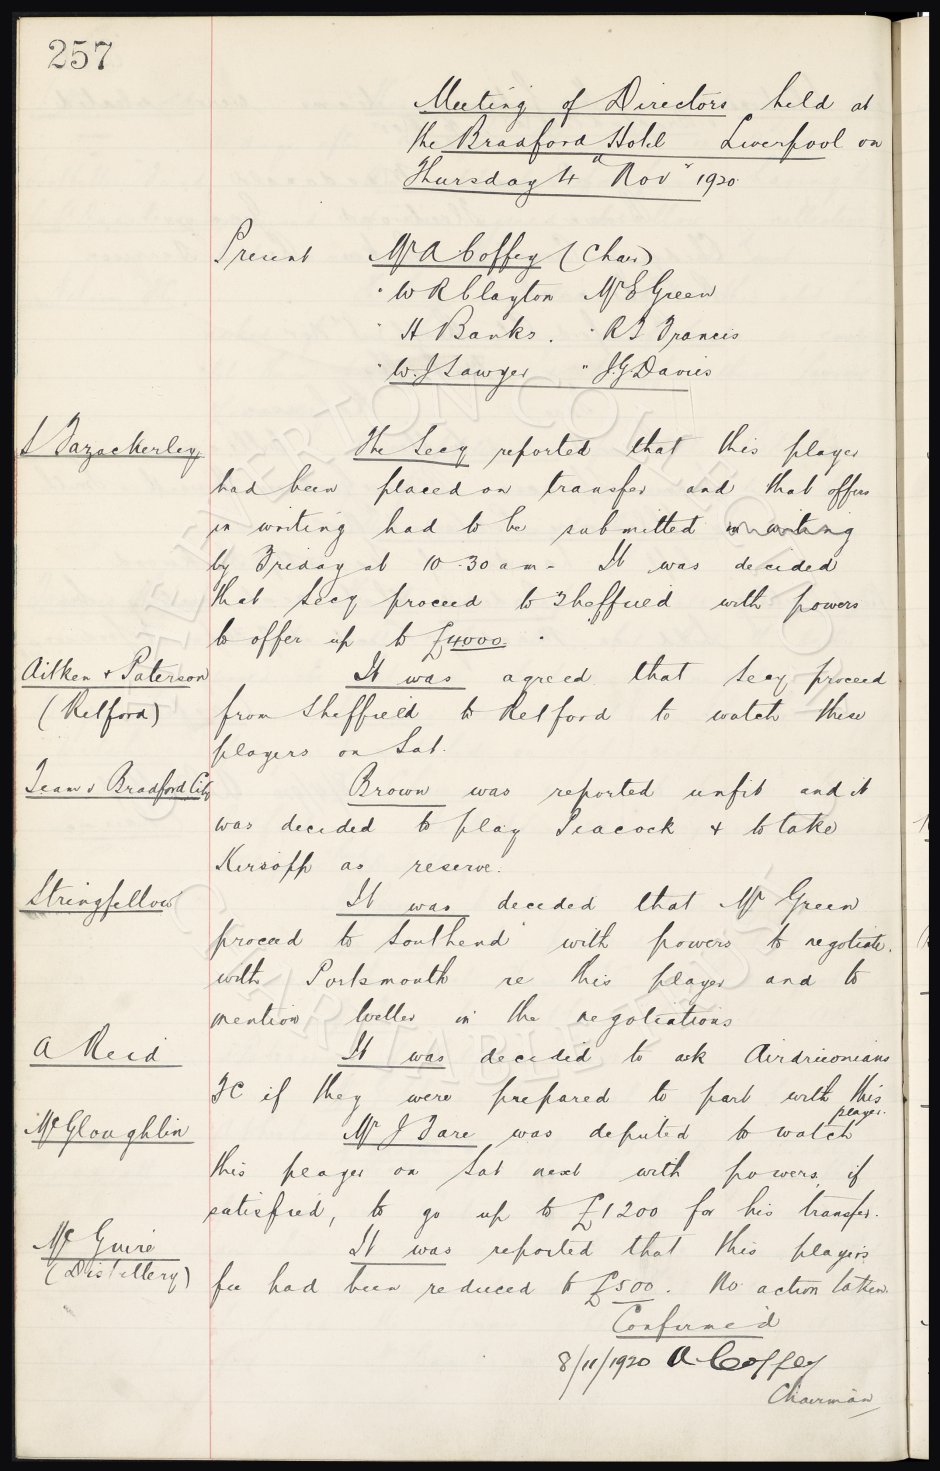 257
Meeting of Directors held at
the Bradford Hotel Liverpool on
Thursday 4th Nov 1920
Present Mr A Coffey (Chair)
" W R Clayton Mr E Green
" H Banks. " R T Francis
" W. J Sawyer " J. G Davies
S Fazackerley The Secy reported that this player
had been placed on transfer and that offers
in writing had to be submitted in writing
by Friday at 10.30 am - It was decided
that Secy proceed to Sheffield with powers
to offer up to £4000.
Aitken & Paterson It was agreed that Secy proceed
(Retford) from Sheffield to Retford to watch these
players on Sat.
Team v Bradford City Brown was reported unfit and it
was decided to play Peacock & to take
Kirsopp as reserve.
Stringfellow It was decided that Mr Green
proceed to Southend with powers to negotiate
with Portsmouth re this player and to
mention Weller in the negotiations
A Reid It was decided to ask Airdrieonians
FC if they were prepared to part with this
player.
McGloughlin Mr J Fare was deputed to watch
this player on Sat next with powers, if
satisfied, to go up to £1200 for his transfer.
Mc Guire It was reported that this player's
(Distillery) fee had been reduced to £500. No action taken
Confirmed
8/11/1920 A. Coffey
Chairman